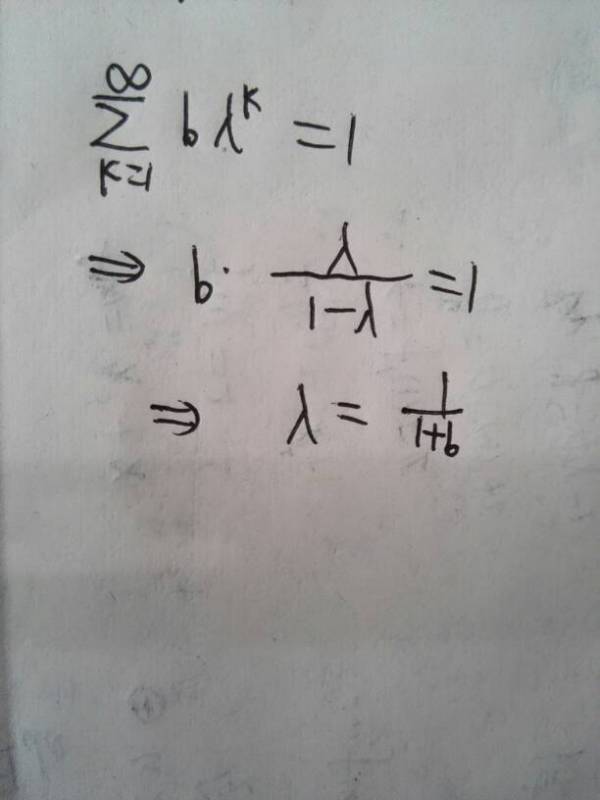 ∑_{k=1}^{∞} bλ^k = 1
⇒ b · \frac{λ}{1-λ} = 1
⇒ λ = \frac{1}{1+b}